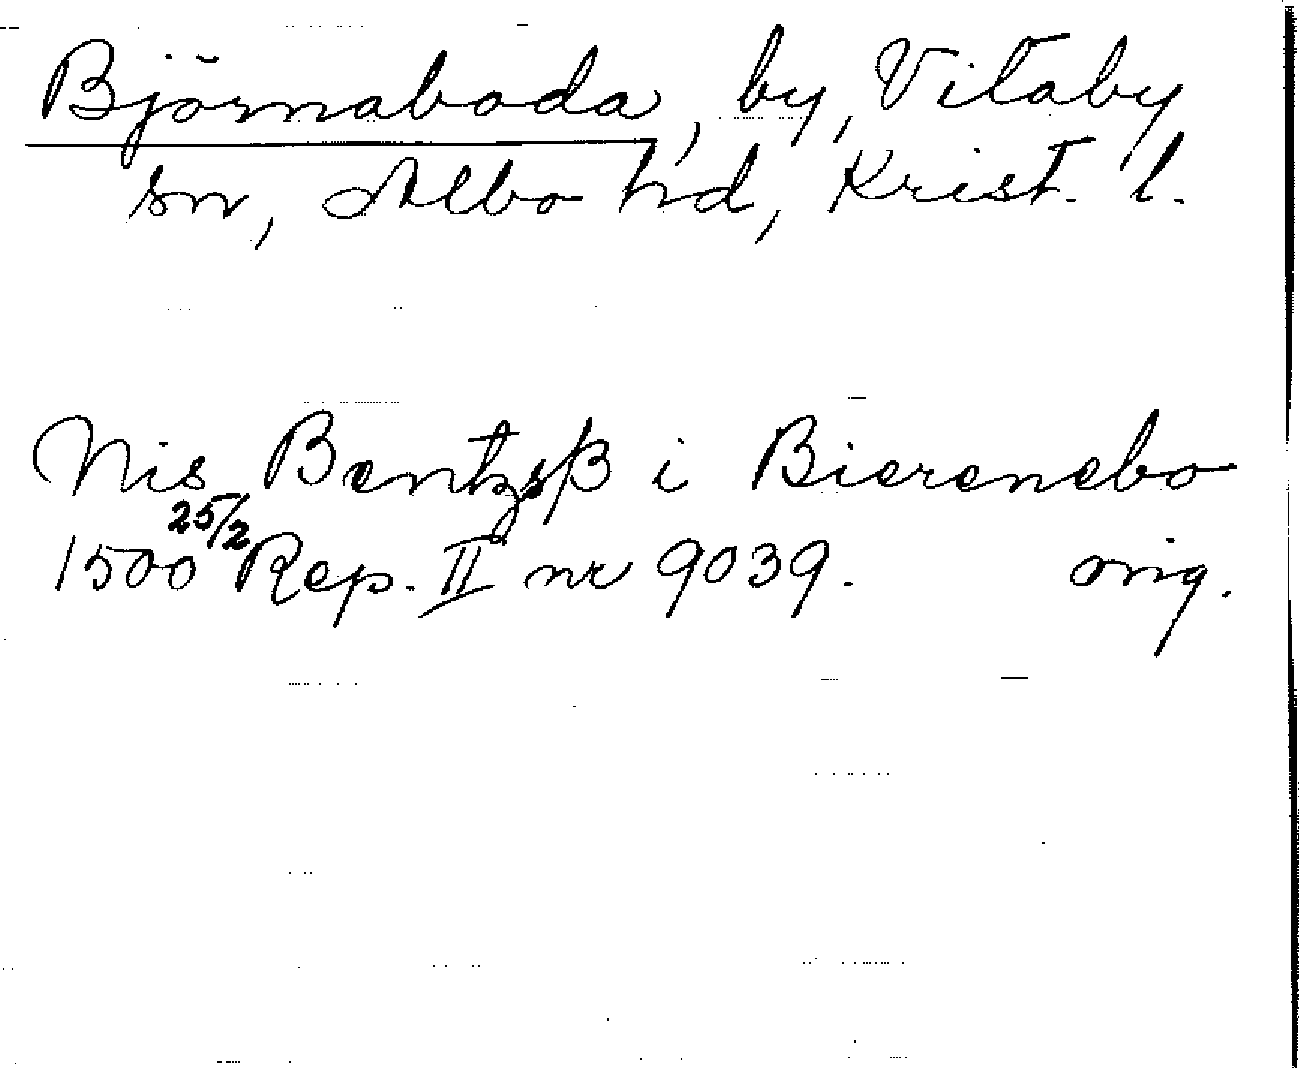 Björnaboda, by, Vitaby
sn, Albo hd, Krist. l.
Nis Bentzsß i Bierenebo
25/2
1500 Rep. II nr 9039. orig.